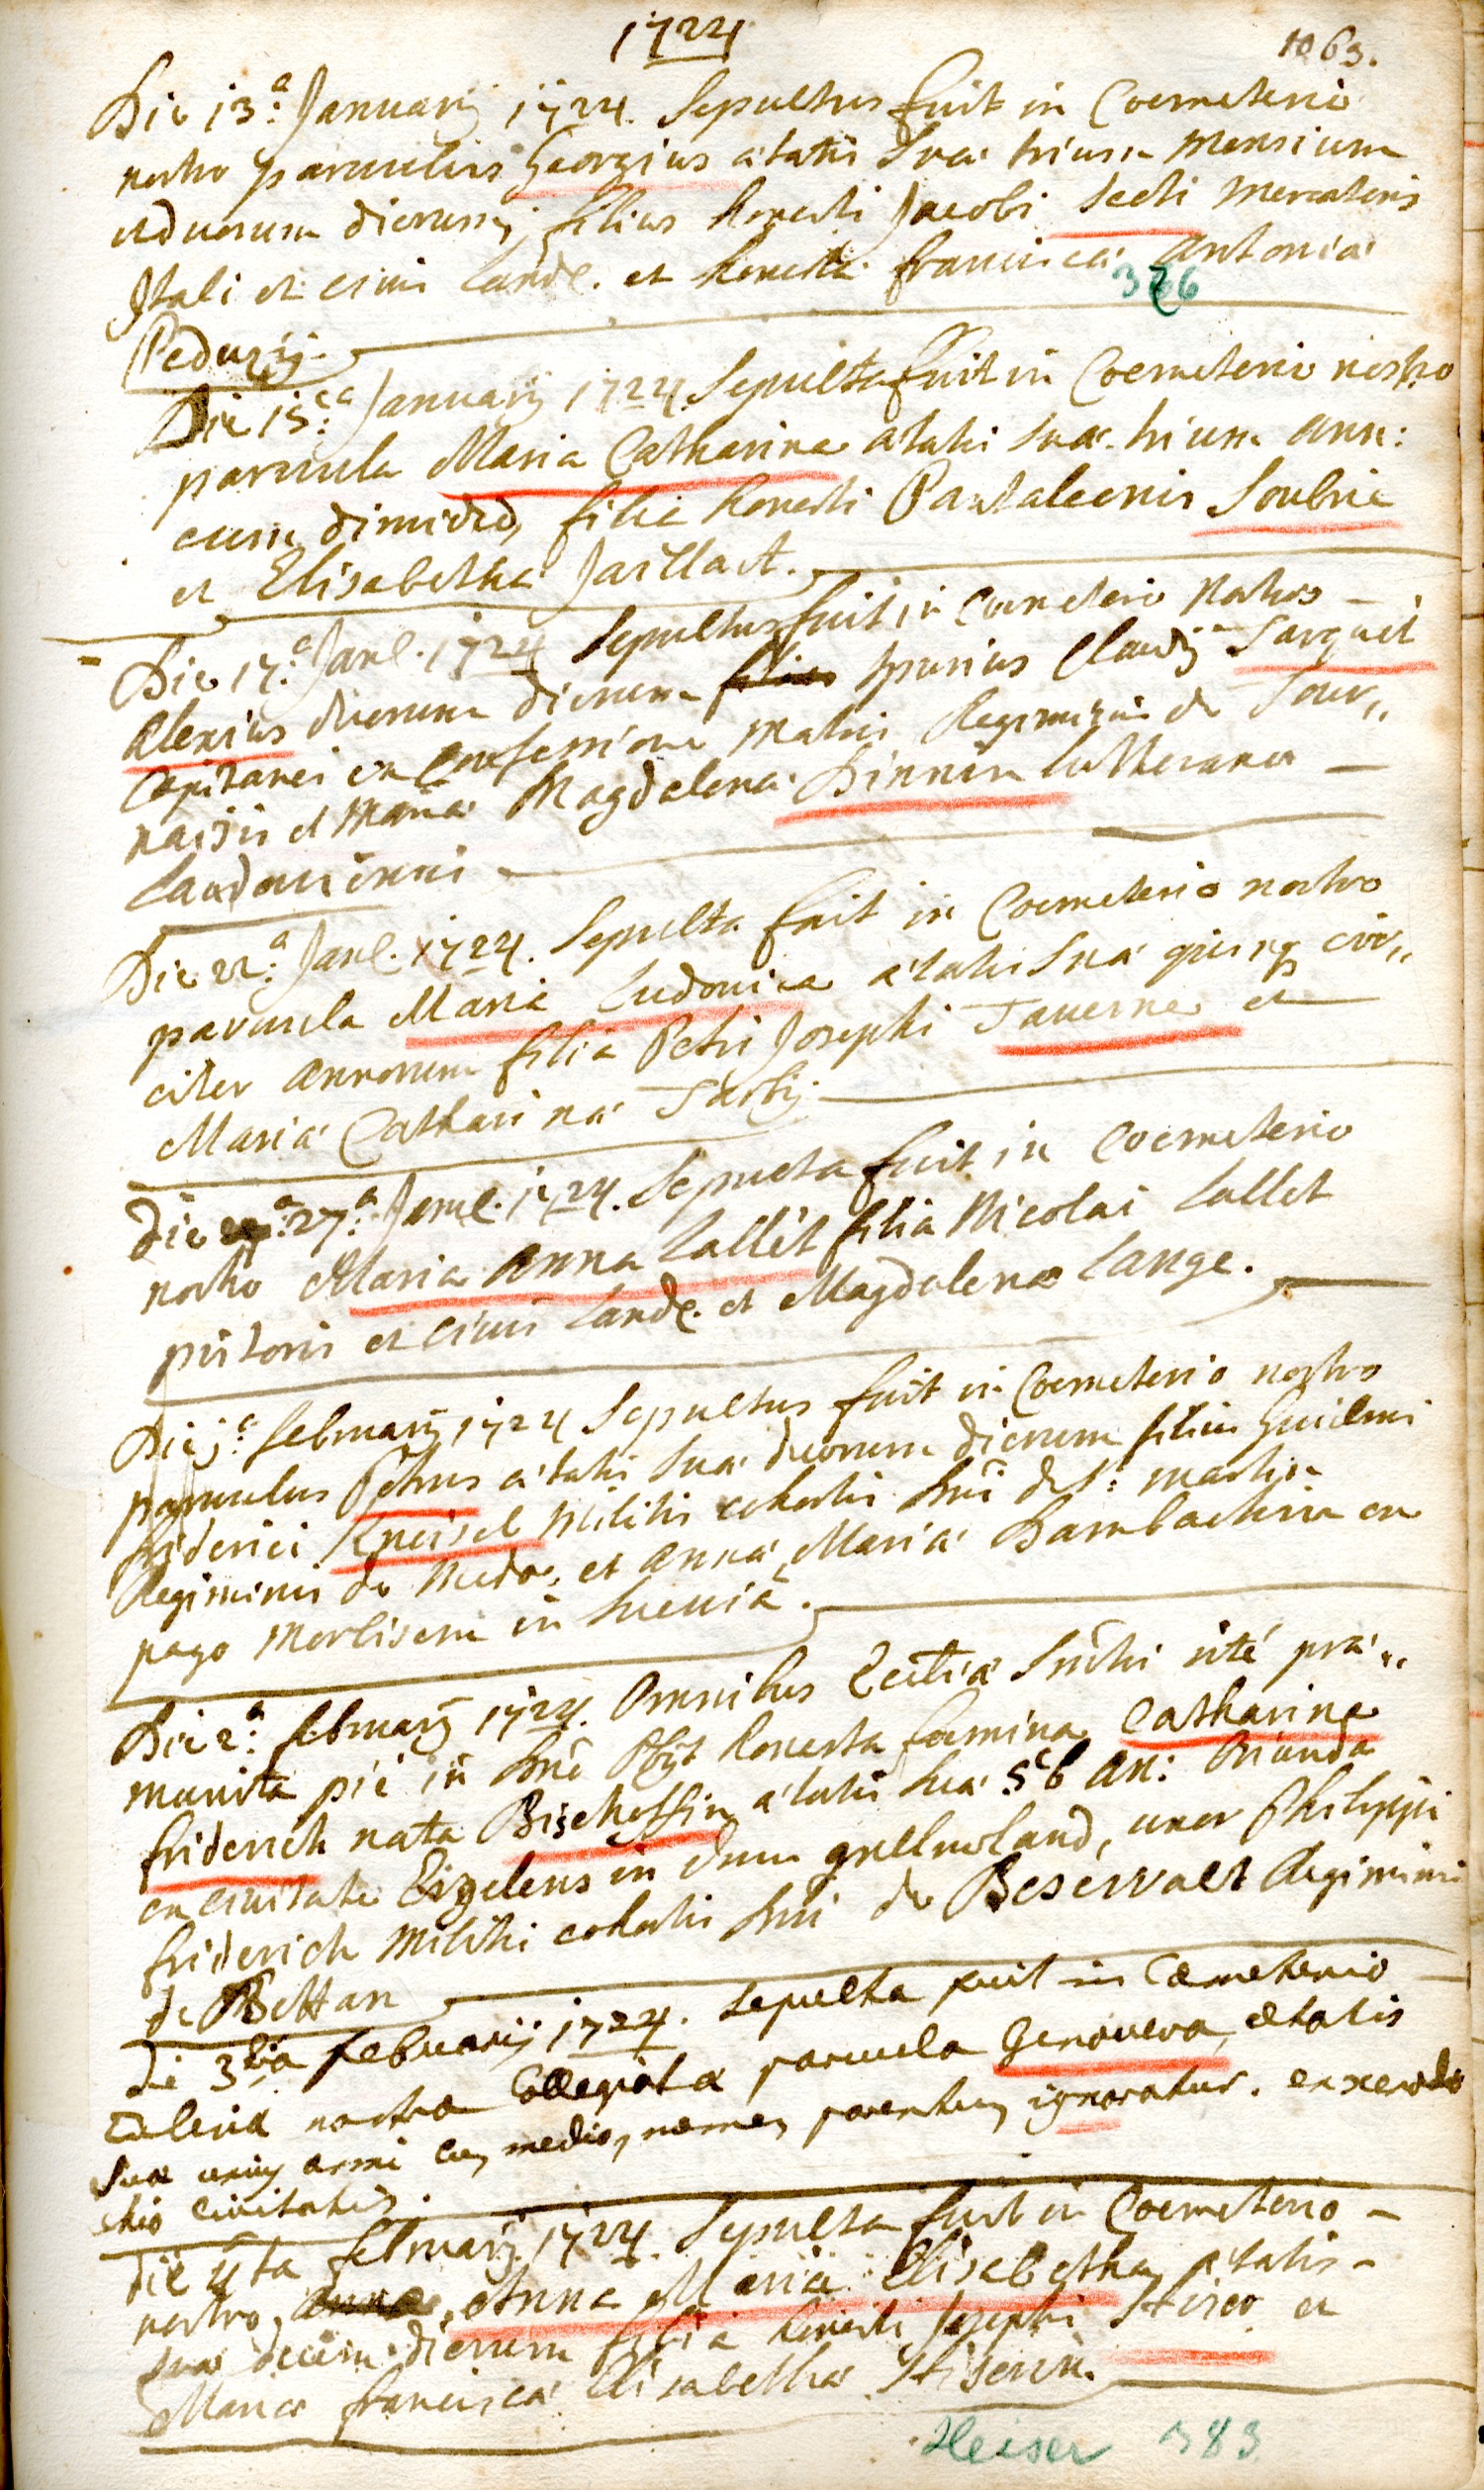 1724
1063.
Die 13.a Januarij 1724. Sepultus fuit in Coemeterio
nostro parvulus Georgius ætatis Suæ trium Mensium
et duorum dierum, filius honesti Jacobi Secti Mercatoris
Itali et civis Land. et honestæ franciscæ Antoniæ
376
Peduzij.
Die 15.ta Januarij 1724. Sepulta fuit in Coemeterio nostro
parvula Maria Catharina ætatis suæ trium ann:
cum dimidio, filia honesti Pantaleonis Soubrie
et Elisabethæ Jaillact.
Die 17.a Janl. 1724 Sepultus fuit in Coemeterio Nostro
Alexius duorum dierum spurius Claudij Sarquet
Capitanei ex Confessione Matris Regiminis de Tour,,
naisis et Mariæ Magdalenæ Dinnin lutheranæ
Landaviensis
Die 22.a Janl. 1724. Sepulta fuit in Coemeterio nostro
parvula Maria Ludovica ætatis Suæ quinq circi,,
citer annorum filia Petri Josephi Taverne et
Mariæ Catharinæ
Die 27.a Janl. 1724. Sepulta fuit in Coemeterio
nostro Maria Anna Lallet filia Nicolai Lallet
pistoris et civis Land. et Magdalenæ Lange.
Die j.a februarij 1724 Sepultus fuit in Coemeterio nostro
parvulus Petrus ætatis Suæ duorum dierum filius Guilelmi
friderici Kneisel Militis cohortis Dni de St: Martin
Regiminis de Medoc, et Annæ Mariæ Dambacherin ex
pago Merlisem in Suevia.
Die 2.a februarij 1724. Omnibus Eccliæ Sacrtis rité præ,,
munita pié in Dno Obijt honesta foemina Catharina
friderich nata Bischoffin ætatis Suæ 56 an: Oriunda
ex civitate Eigelens in Grellnoland, uxor Philippi
friderich Militis cohortis Dni de Beservalt Regiminis
de Bettan
die 3tia februarij 1724. Sepulta fuit in Cæmeterio
Ecclesiæ nostræ Collegiatæ parvula Genoveva, ætatis
Suæ unius anni cum medio, nomen parentum ignoratur. ex xenodo
chio civitatis.
die 4ta februarij 1724. Sepulta fuit in Coemeterio
nostro, Anna Maria Elisabetha, ætatis
suæ decem dierum filia honesti Josephi Hiser et
Mariæ franciscæ Elisabethæ Hiserin.
Heiser 383